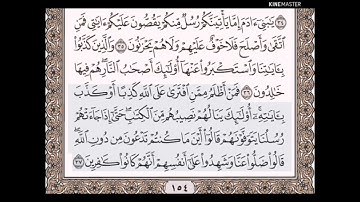 KINEMASTER
٣٤ يَٰبَنِىٓ ءَادَمَ إِمَّا يَأْتِيَنَّكُمْ رُسُلٌ مِّنكُمْ يَقُصُّونَ عَلَيْكُمْ ءَايَٰتِى فَمَنِ
ٱتَّقَىٰ وَأَصْلَحَ فَلَا خَوْفٌ عَلَيْهِمْ وَلَا هُمْ يَحْزَنُونَ ٣٥ وَٱلَّذِينَ كَذَّبُوا۟
بِـَٔايَٰتِنَا وَٱسْتَكْبَرُوا۟ عَنْهَآ أُو۟لَٰٓئِكَ أَصْحَٰبُ ٱلنَّارِ هُمْ فِيهَا
خَٰلِدُونَ ٣٦ فَمَنْ أَظْلَمُ مِمَّنِ ٱفْتَرَىٰ عَلَى ٱللَّهِ كَذِبًا أَوْ كَذَّبَ
بِـَٔايَٰتِهِۦٓ أُو۟لَٰٓئِكَ يَنَالُهُمْ نَصِيبُهُم مِّنَ ٱلْكِتَٰبِ حَتَّىٰٓ إِذَا جَآءَتْهُمْ
رُسُلُنَا يَتَوَفَّوْنَهُمْ قَالُوٓا۟ أَيْنَ مَا كُنتُمْ تَدْعُونَ مِن دُونِ ٱللَّهِ
قَالُوا۟ ضَلُّوا۟ عَنَّا وَشَهِدُوا۟ عَلَىٰٓ أَنفُسِهِمْ أَنَّهُمْ كَانُوا۟ كَٰفِرِينَ ٣٧
١٥٤